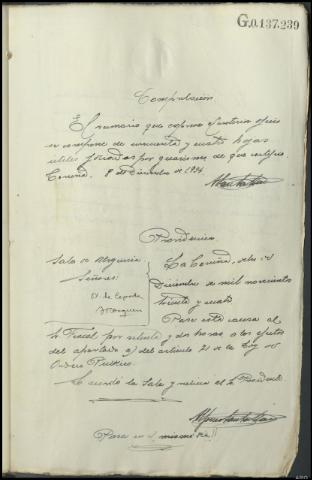 G.0.137.239
Computación
El sumario que expresa el anterior oficio
se compone de cincuenta y cuatro hojas
utiles foliadas por guarismos de que certifico.
Coruña 8 de Diciembre de 1934
Providencia
Sala de Urgencia
Señores
La Coruña, ocho de
Diciembre de mil novecientos
treinta y cuatro
Pase esta causa al
Sr Fiscal por setenta y dos horas a los efectos
del apartado a) del articulo 21 de la Ley de
Orden Publico.
Lo acordó la Sala y rubrica el Sr Presidente
Pasa en el mismo dia